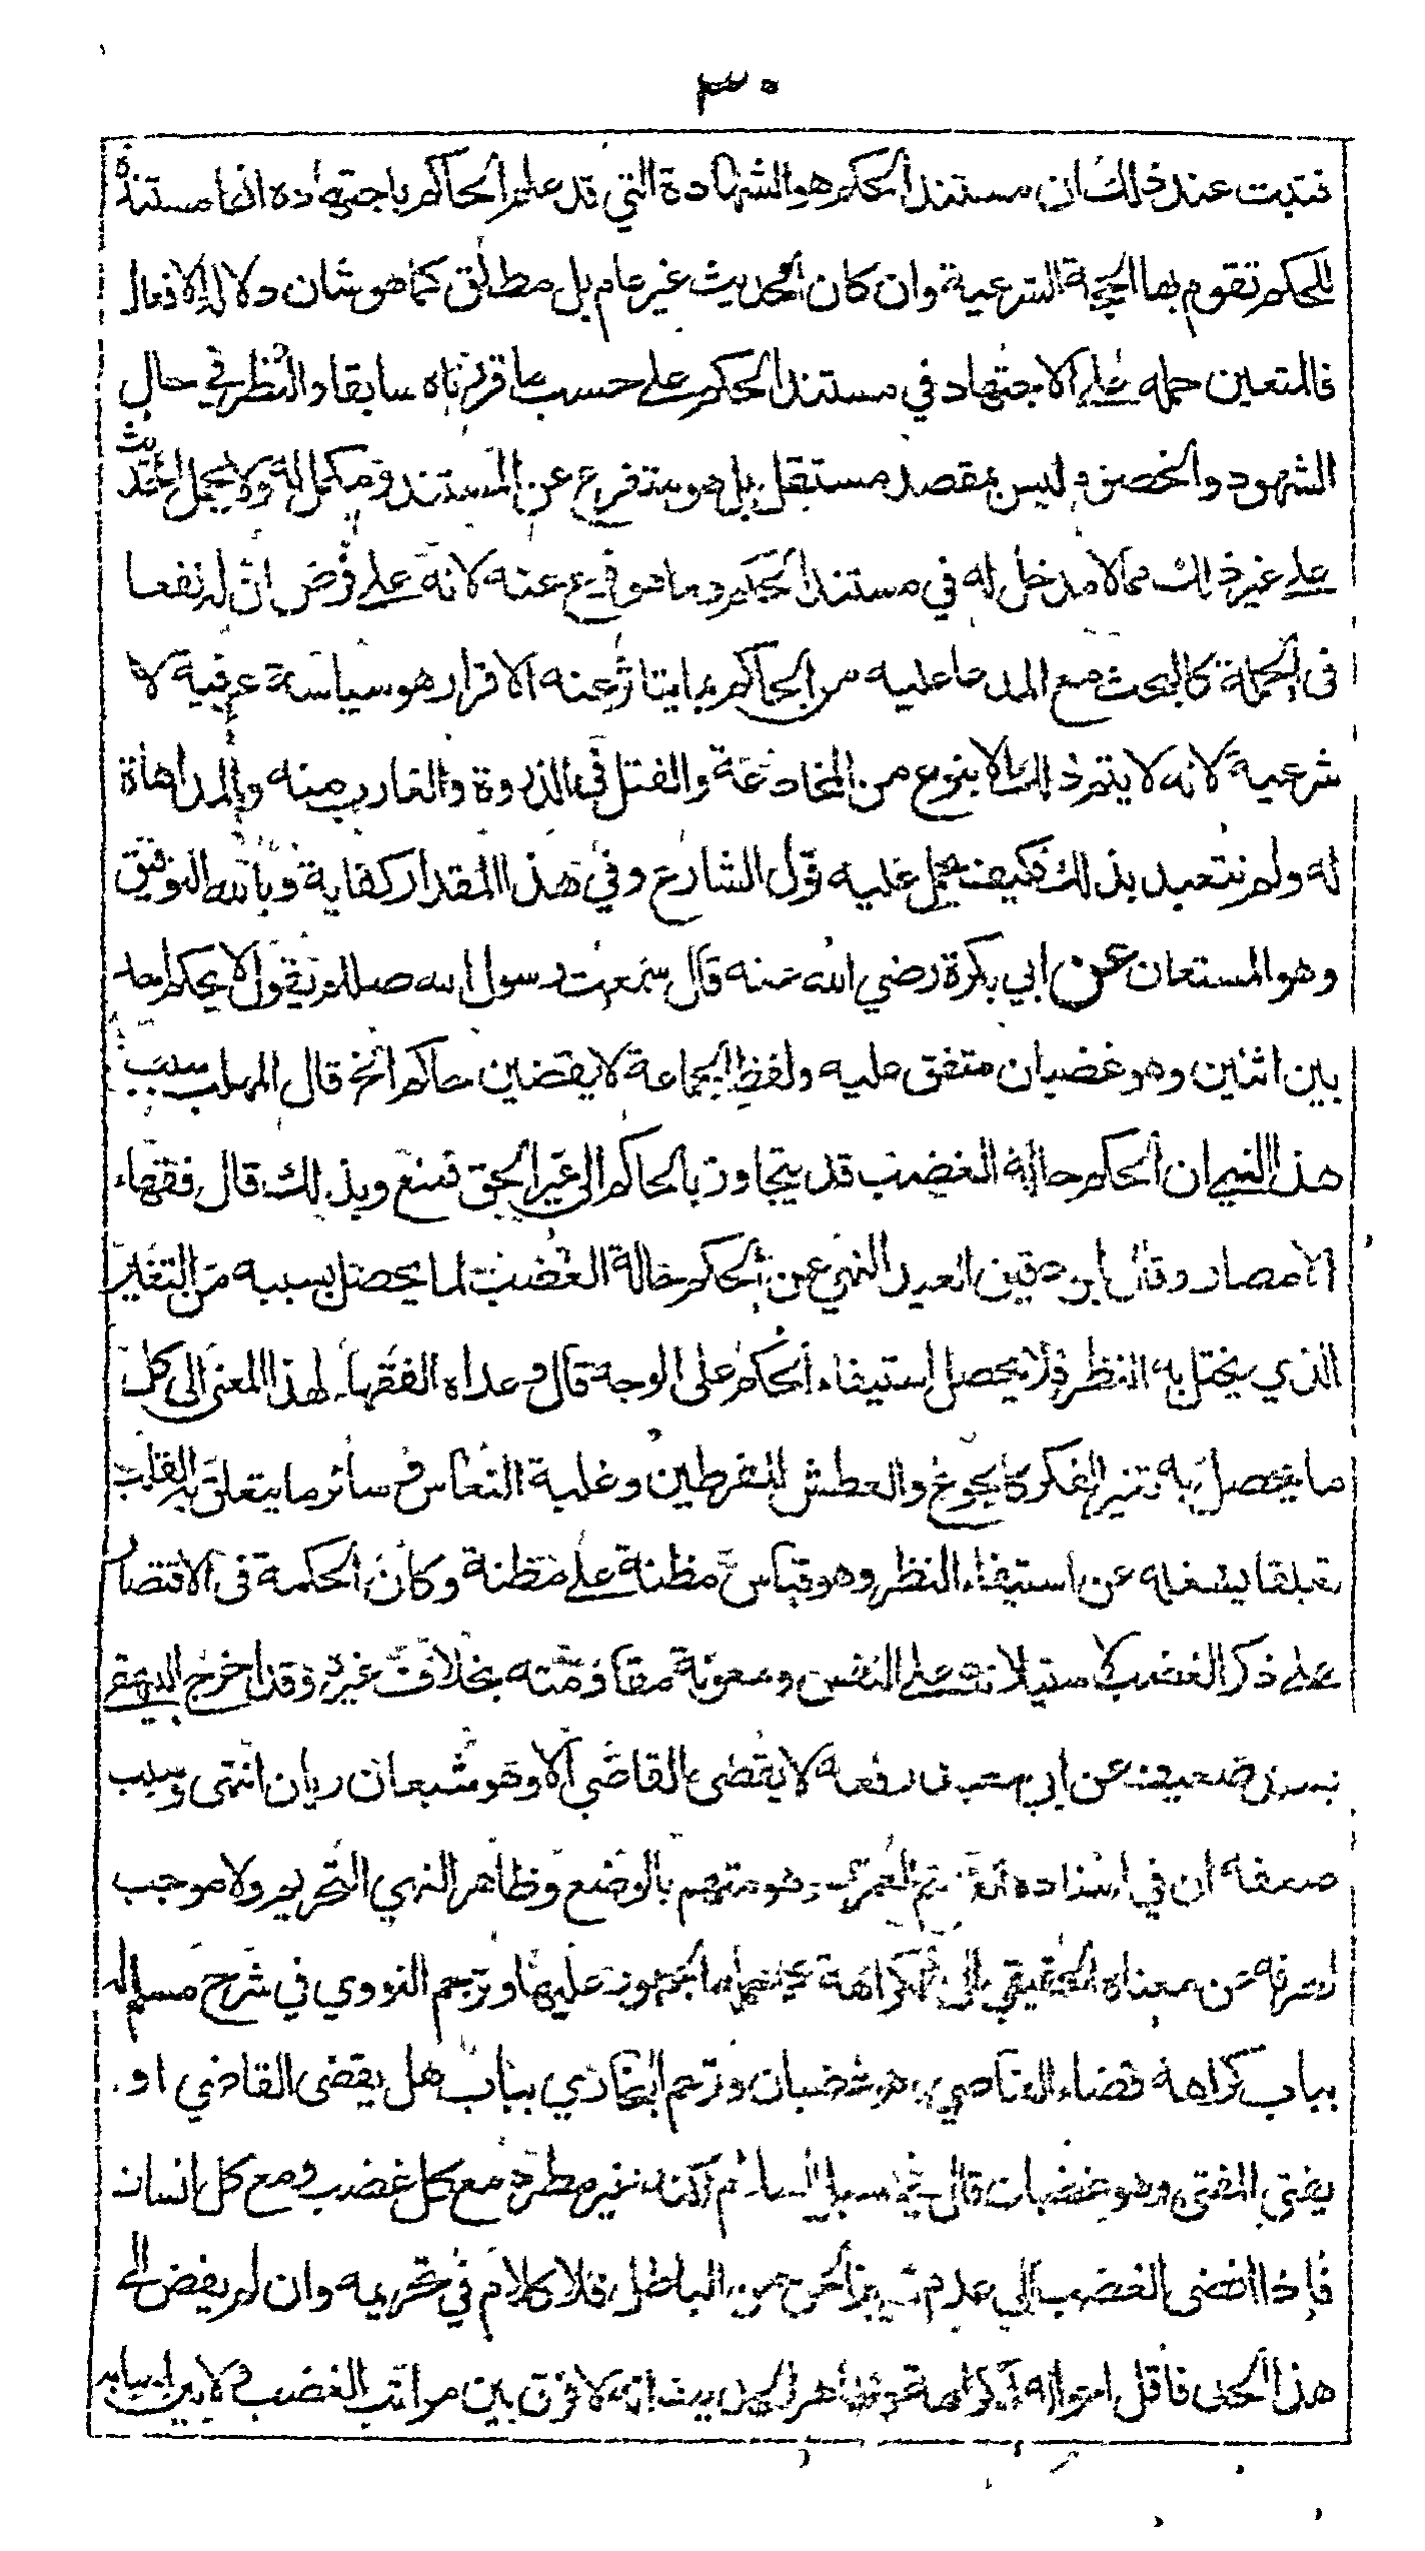 ٣٠
فثبت عند ذلك ان مستند الحكم هو الشهادة التي قد علم الحاكم باجتهاده انها مستندة
للحكم تقوم بها الحجة الشرعية وان كان الحديث غير عام بل مطلق كما هو شان دلالة الافعال
فالمتعين حمله على الاجتهاد في مستند الحكم على حسب ما قررناه سابقا والنظر في حال
الشهود والخصوم وليس بمقصد مستقل بل هو متفرع عن المستند ومكمل له ولا يحمل الحديث
على غير ذلك مما لا مدخل له في مستند الحكم وما هو فرع عنه لانه على فرض ان له نفعا
في الجملة كالبحث مع المدعا عليه من الحاكم بما يتاثر عنه الاقرار هو سياسة عرفية لا
شرعية لانه لا يتم ذلك الا بنوع من المخادعة والفتل في الذروة والغارب منه والمداهاة
له ولم نتعبد بذلك فكيف يحمل عليه قول الشارع وفي هذا المقدار كفاية وبالله التوفيق
وهو المستعان عن ابي بكرة رضي الله عنه قال سمعت رسول الله صللم يقول لا يحكم احد
بين اثنين وهو غضبان متفق عليه ولفظ الجماعة لا يقضين حاكم الخ قال المهلب سبب
هذا النهي ان الحكم حالة الغضب قد يتجاوز بالحاكم الى غير الحق فمنع وبذلك قال فقهاء
الامصار وقال ابن دقيق العيد النهي عن الحكم حالة الغضب لما يحصل بسببه من التغير
الذي يختل به النظر فلا يحصل استيفاء الحكم على الوجه قال وعداه الفقهاء لهذا المعنى الى كل
ما يحصل به تغير الفكر كالجوع والعطش المفرطين وغلبة النعاس وسائر ما يتعلق به القلب
تعلقا يشغله عن استيفاء النظر وهو قياس مظنة على مظنة وكان الحكمة في الاقتصار
على ذكر الغضب لاستيلائه على النفس وصعوبة مقاومته بخلاف غيره وقد اخرج البيهقي
بسند ضعيف عن ابي سعيد رفعه لا يقضي القاضي الا وهو شبعان ريان انتهى وسبب
ضعفه ان في اسناده القاسم العمري وهو متهم بالوضع وظاهر النهي التحريم ولا موجب
لصرفه عن معناه الحقيقي الى الكراهة الجمهور عليها وترجم النووي في شرح مسلم له
بباب كراهة قضاء القاضي وهو غضبان وترجم البخاري بباب هل يقضى القاضي او
يفتي المفتي وهو غضبان قال في سبل السلام لكنه غير مطرد مع كل غضب ومع كل انسان
فاذا افضى الغضب الى عدم تمييز الحق من الباطل فلا كلام في تحريمه وان لم يفض الى
هذا الحد فاقل احواله الكراهة وظاهر الحديث انه لا فرق بين مراتب الغضب ولا بين اسبابه